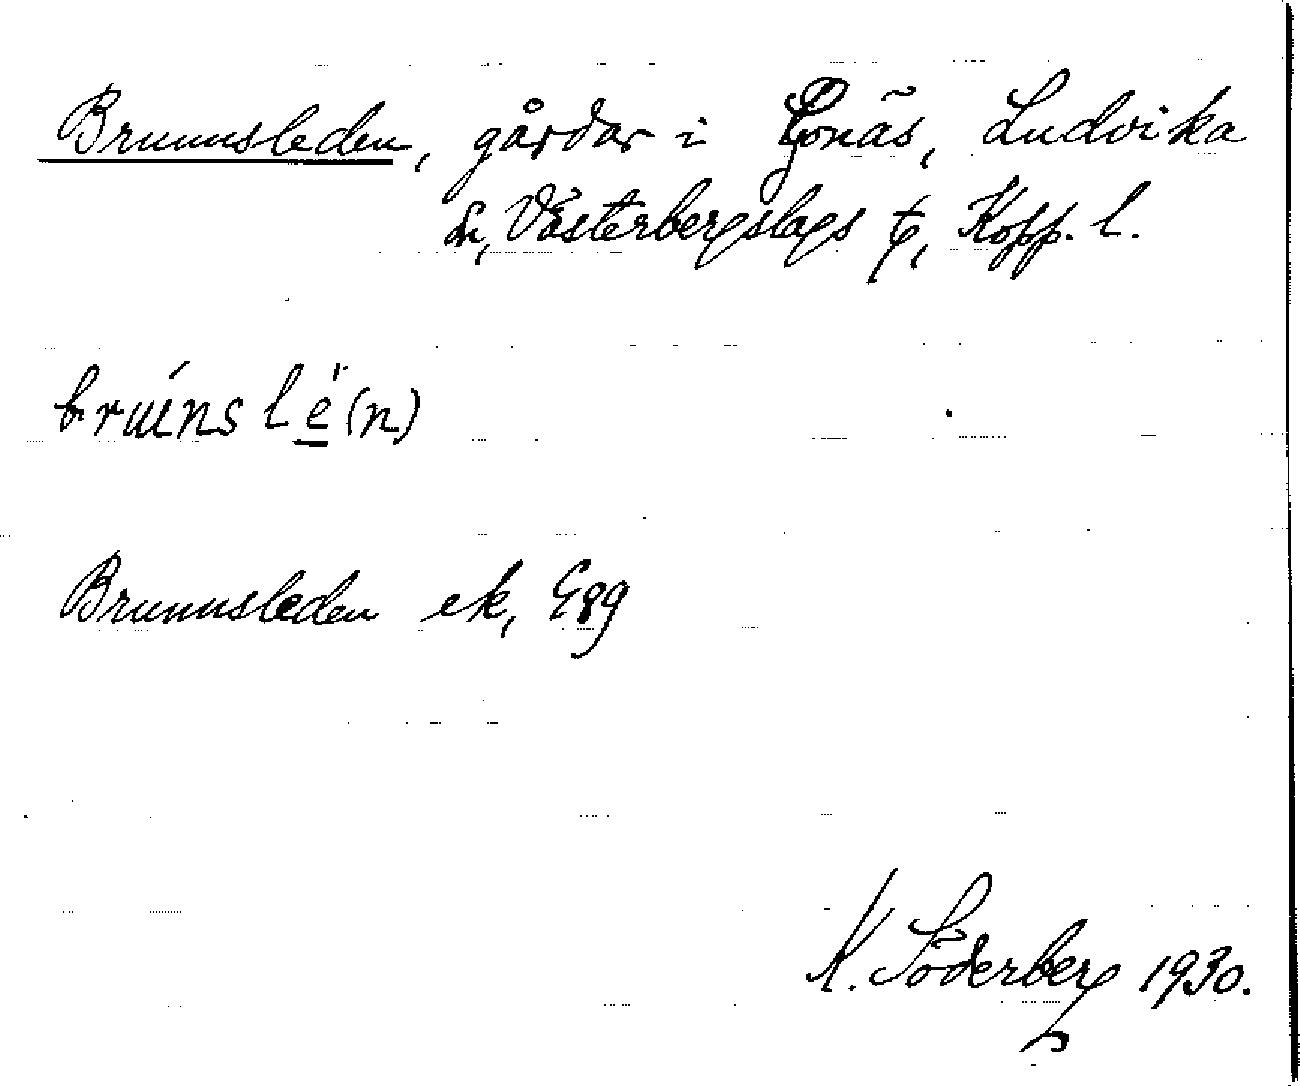 Brunnsleden, gårdar i Gonäs, Ludvika
sn, Västerbergslags tg, Kopp. l.
brúnslè(n)
Brunnsleden ek, E89
K. Söderberg 1930.